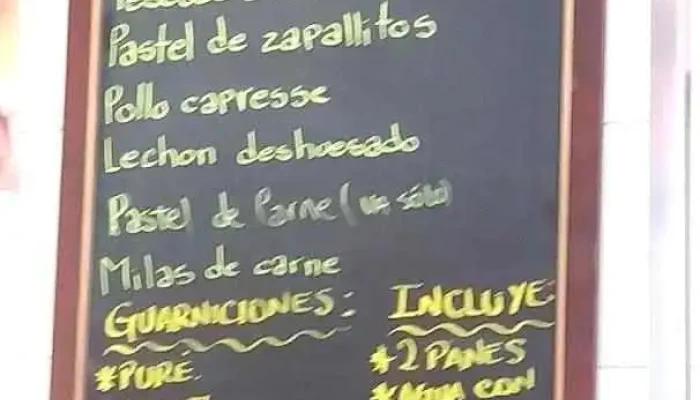 Pastel de zapallitos
Pollo capresse
Lechon deshoesado
Pastel de Parne (va sólo)
Milas de carne
GUARNICIONES:
*PURÉ.
INCLUYE:
*2 PANES
*AGUA CON